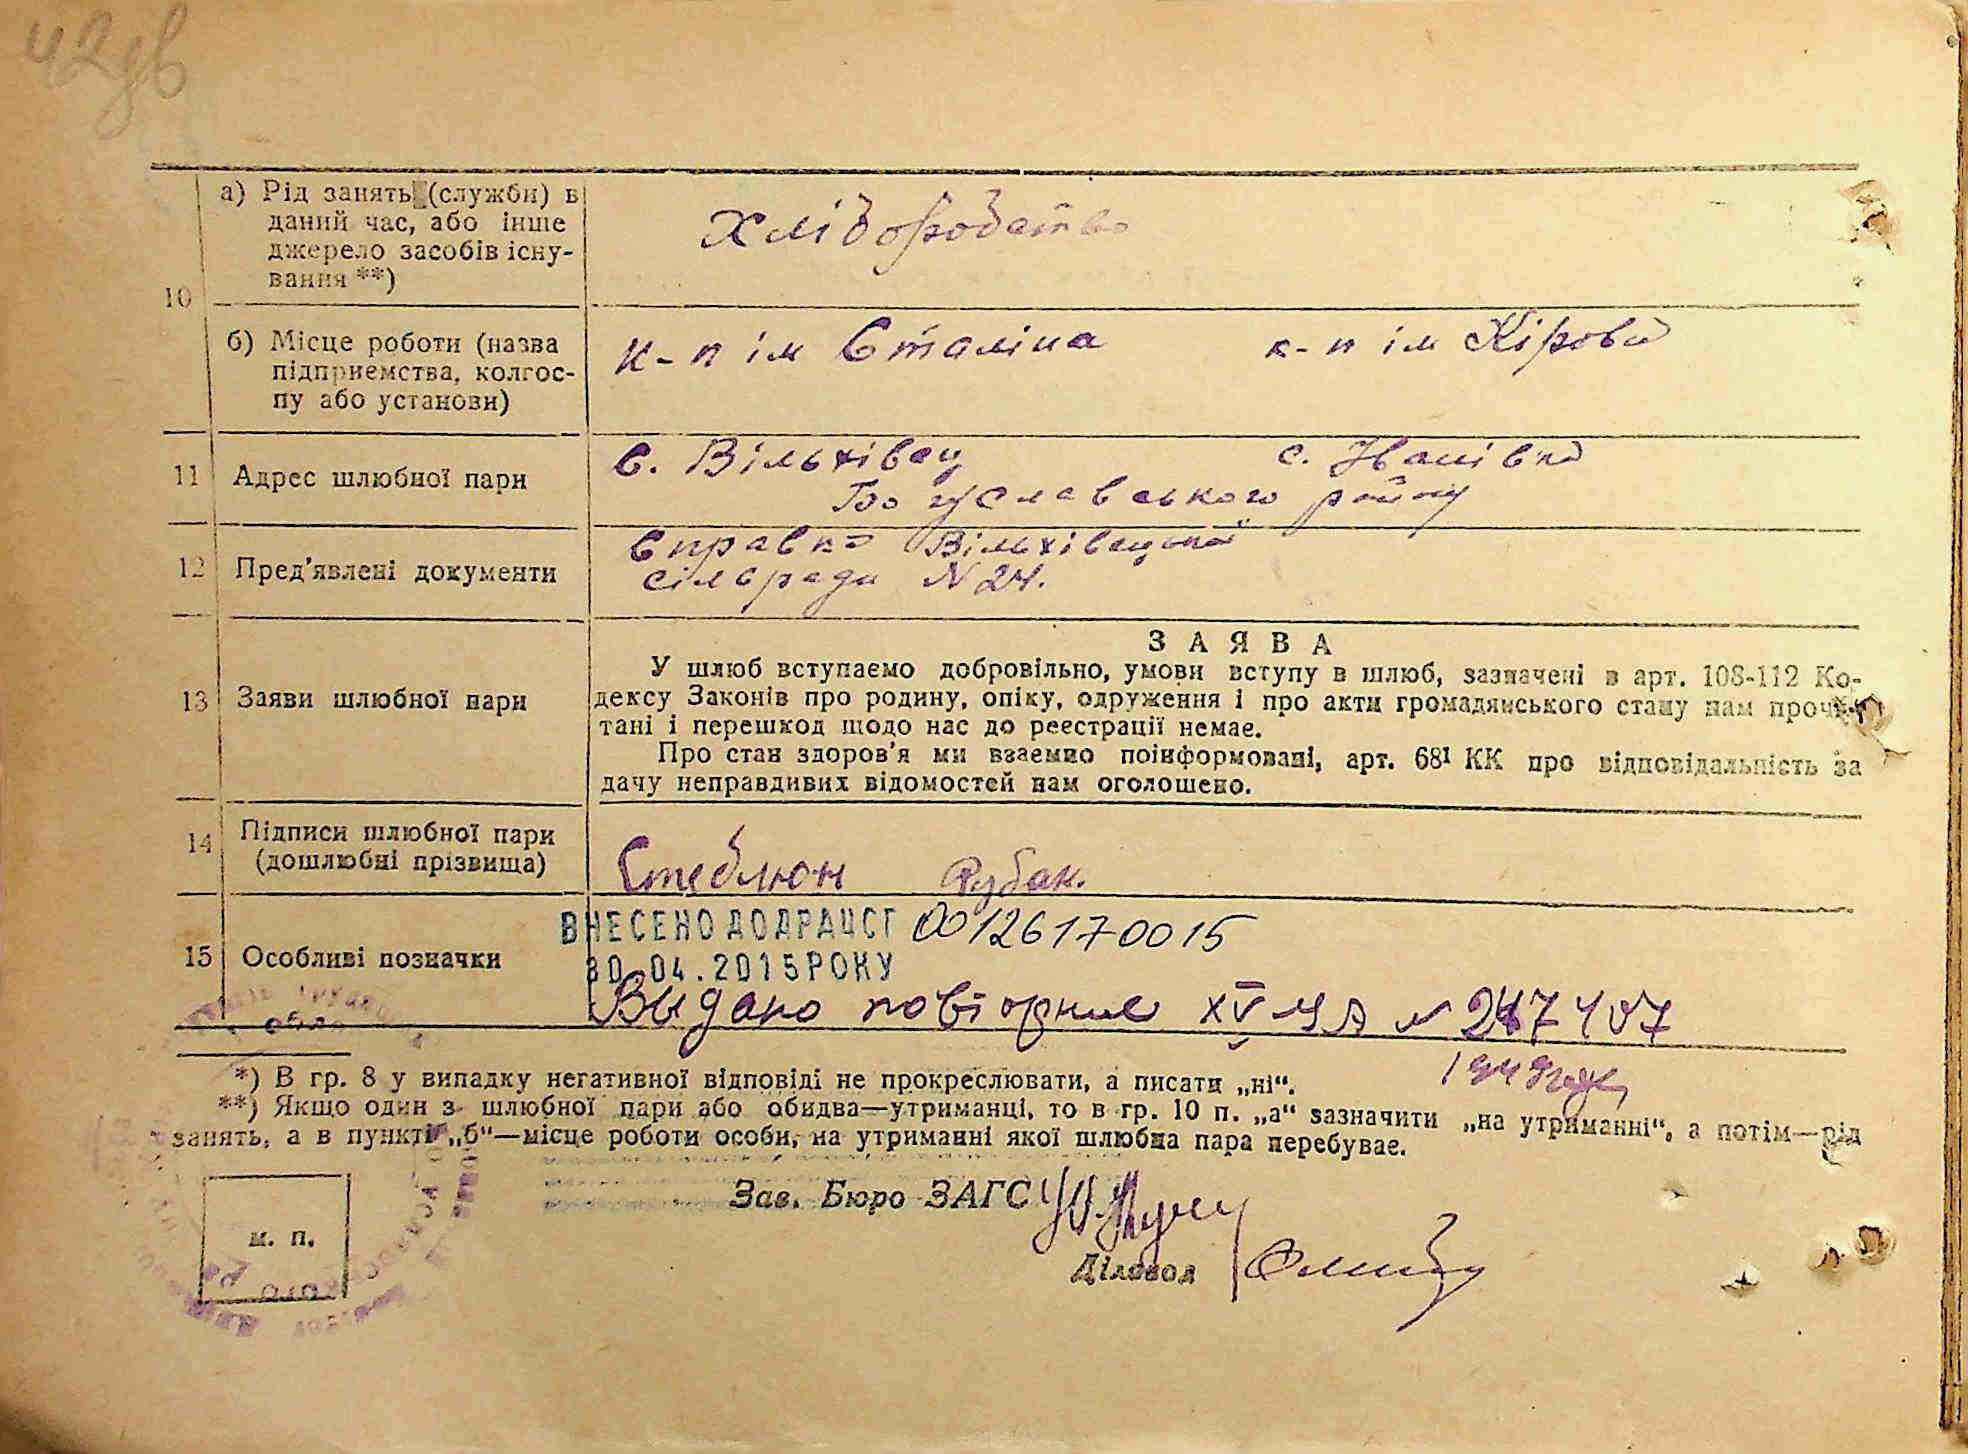 42 зв
10
а) Рід занять (служби) в
даний час, або інше
джерело засобів існу-
вання **)
Хліборобство
б) Місце роботи (назва
підприємства, колгос-
пу або установи)
к-п ім Сталіна к-п ім Кірова
11 Адрес шлюбної пари
с. Вільхівец с. Іванівка
Богуславського району
12 Пред'явлені документи
Справка Вільхівецької
сільради N 24.
13 Заяви шлюбної пари
ЗАЯВА
У шлюб вступаємо добровільно, умови вступу в шлюб, зазначені в арт. 108-112 Ко-
дексу Законів про родину, опіку, одруження і про акти громадянського стану нам прочи-
тані і перешкод щодо нас до реєстрації немає.
Про стан здоров'я ми взаємно поінформовані, арт. 68¹ КК про відповідальність за
дачу неправдивих відомостей нам оголошено.
14 Підписи шлюбної пари
(дошлюбні прізвища)
Стеблюк Рубан.
15 Особливі позначки
ВНЕСЕНО ДО ДРАЦСГ 00126170015
30.04.2015 РОКУ
Видано повторне XV
*) В гр. 8 у випадку негативної відповіді не прокреслювати, а писати „ні“.
**) Якщо один з шлюбної пари або обидва—утриманці, то в гр. 10 п. „а“ зазначити „на утриманні“, а потім—рід
занять, а в пункті „б“—місце роботи особи, на утриманні якої шлюбна пара перебуває.
Зав. Бюро ЗАГС
Діловод
м. п.